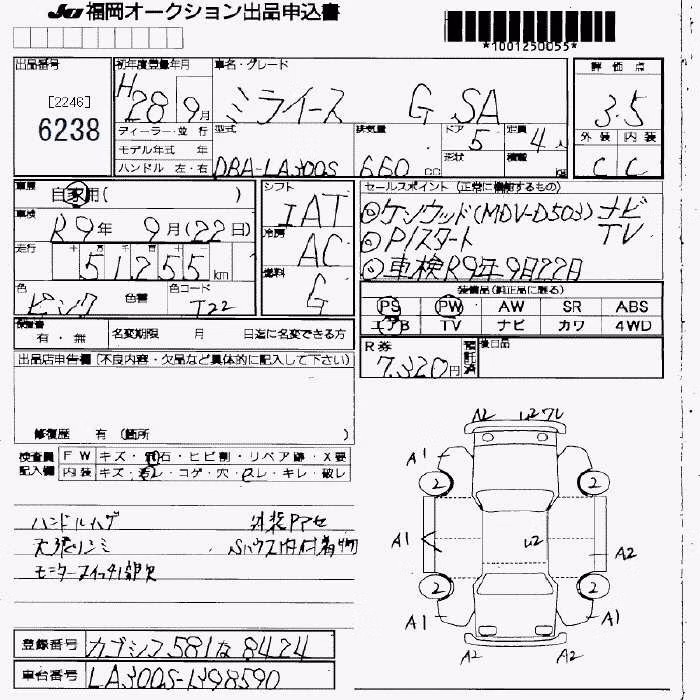 JU 福岡オークション出品申込書
*1001250055*
出品番号 初年度登録年月 車名・グレード 評価点
[2246]
6238
H28 9月 ミライース G SA 3.5
ディーラー・並行 型式 排気量 ドア 5 定員 4人 外装 内装
モデル年式 年 形状 積載 kg C C
ハンドル 左・右 DBA-LA300S 660cc
車歴 自家用( ) シフト セールスポイント (正常に機能するもの)
車検 R9年 9月(22日) IAT ◎ケンウッド(MDV-D503)ナビ
TV
走行 十 万 千 百 十 冷房 ◎P/スタート
51255km AC ◎車検R9年9月22日
色 色替 色コード 燃料 装備品(純正品に限る)
ピンク T22 G PS PW AW SR ABS
エアB TV ナビ カワ 4WD
保証書 有・無 名変期限 月 日迄に名変できる方
R券 7,320円 預託済 後日品
出品店申告欄 (不良内容・欠品など具体的に記入して下さい)
修復歴 有 (箇所 )
検査員 FW キズ・飛石・ヒビ割・リペア跡・X要
記入欄 内装 キズ・汚レ・コゲ・穴・スレ・キレ・破レ
ハンドルハゲ 外装Pアセ
天張リシミ
A2 U2ワレ
A1 A1
2 2
A1 U2 A2
2 2
A1 A1
A2 A2
登録番号 カゴシマ 581 な 8424
車台番号 LA300S-1398590